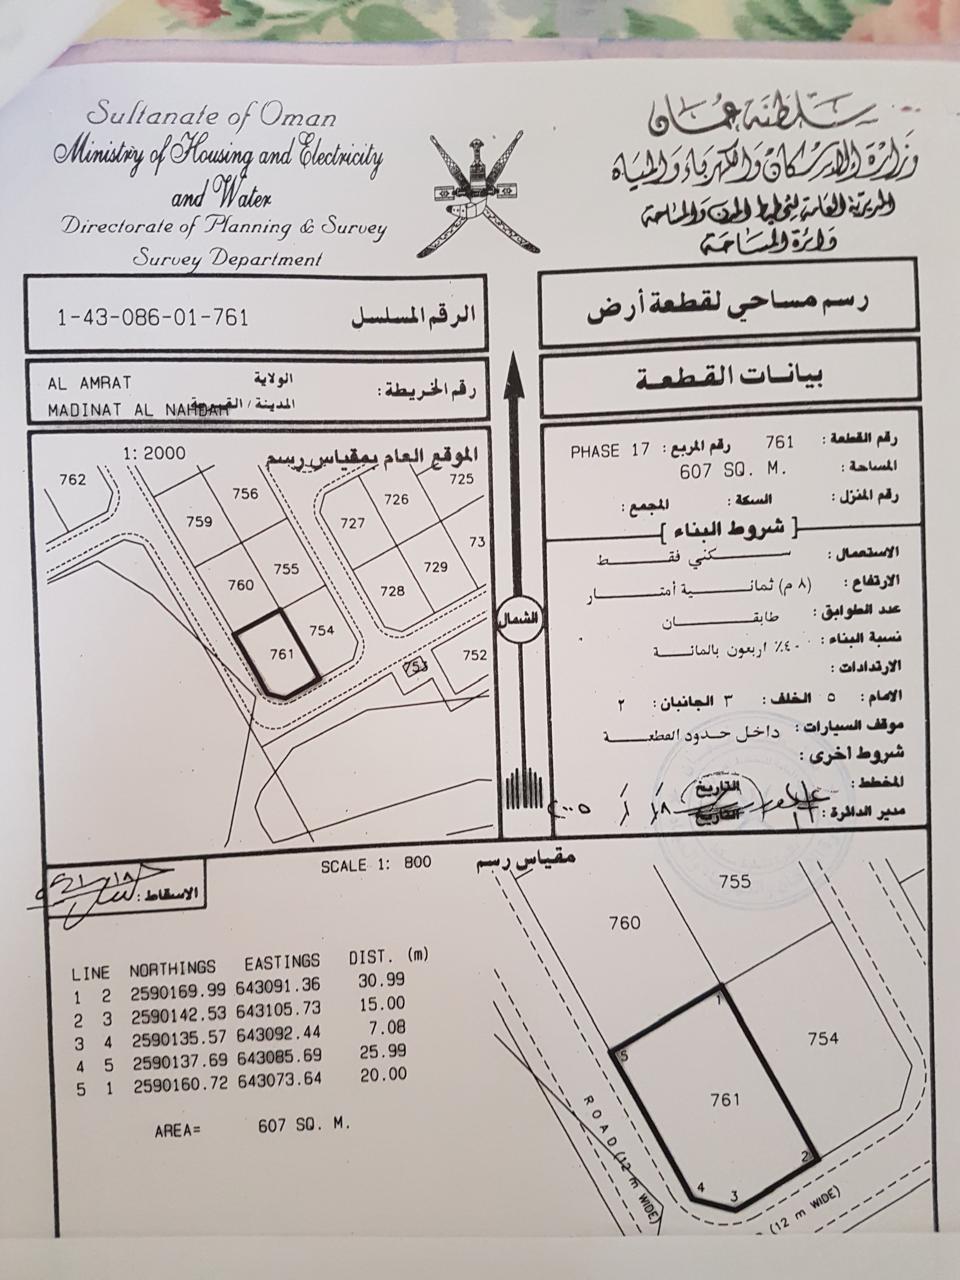 Sultanate of Oman
Ministry of Housing and Electricity
and Water
Directorate of Planning & Survey
Survey Department
سلطنة عمان
وزارة الإسكان والكهرباء والمياه
المديرية العامة لتخطيط المدن والمساحة
دائرة المساحة
1-43-086-01-761 الرقم المسلسل
رسم مساحي لقطعة أرض
AL AMRAT الولاية
MADINAT AL NAHDAH المدينة / القرية
رقم الخريطة :
بيانات القطعة
1: 2000 الموقع العام بمقياس رسم
762
756
759
760
755
754
761
725
726
727
73
729
728
753
752
الشمال
رقم القطعة : 761 رقم المربع : PHASE 17
المساحة : 607 SQ. M.
رقم المنزل : السكة : المجمع :
شروط البناء
الاستعمال : سكني فقط
الارتفاع : (٨ م) ثمانية أمتار
عدد الطوابق : طابقان
نسبة البناء : ٤٠٪ اربعون بالمائة
الارتدادات :
الامام : ٥ الخلف : ٣ الجانبان : ٢
موقف السيارات : داخل حدود القطعة
شروط اخرى :
المخطط : التاريخ
مدير الدائرة : التاريخ
الاسقاط :
SCALE 1: 800 مقياس رسم
LINE NORTHINGS EASTINGS DIST. (m)
1 2 2590169.99 643091.36 30.99
2 3 2590142.53 643105.73 15.00
3 4 2590135.57 643092.44 7.08
4 5 2590137.69 643085.69 25.99
5 1 2590160.72 643073.64 20.00
AREA= 607 SQ. M.
755
760
754
761
1
5
2
4
3
ROAD (12 m WIDE)
(12 m WIDE)